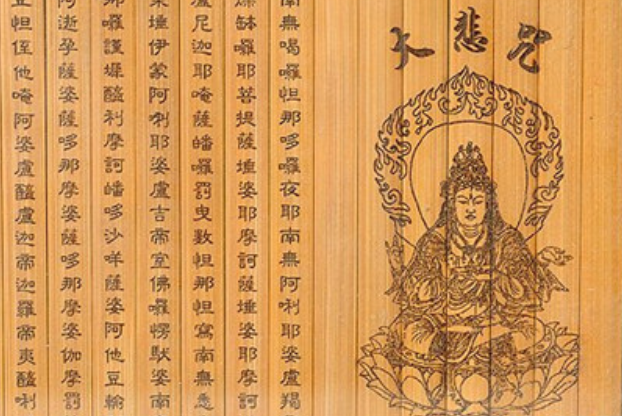 大悲咒
南無喝囉怛那哆囉夜耶南無阿唎耶婆盧羯
爍缽囉耶菩提薩埵婆耶摩訶薩埵婆耶摩訶
盧尼迦耶唵薩皤囉罰曳數怛那怛寫南無悉
埵伊蒙阿唎耶婆盧吉帝室佛囉楞馱婆南
那囉謹墀醯利摩訶皤哆沙咩薩婆阿他豆輸
阿逝孕薩婆薩哆那摩婆薩哆那摩婆伽摩罰
怛侄他唵阿婆盧醯盧迦帝迦羅帝夷醯唎